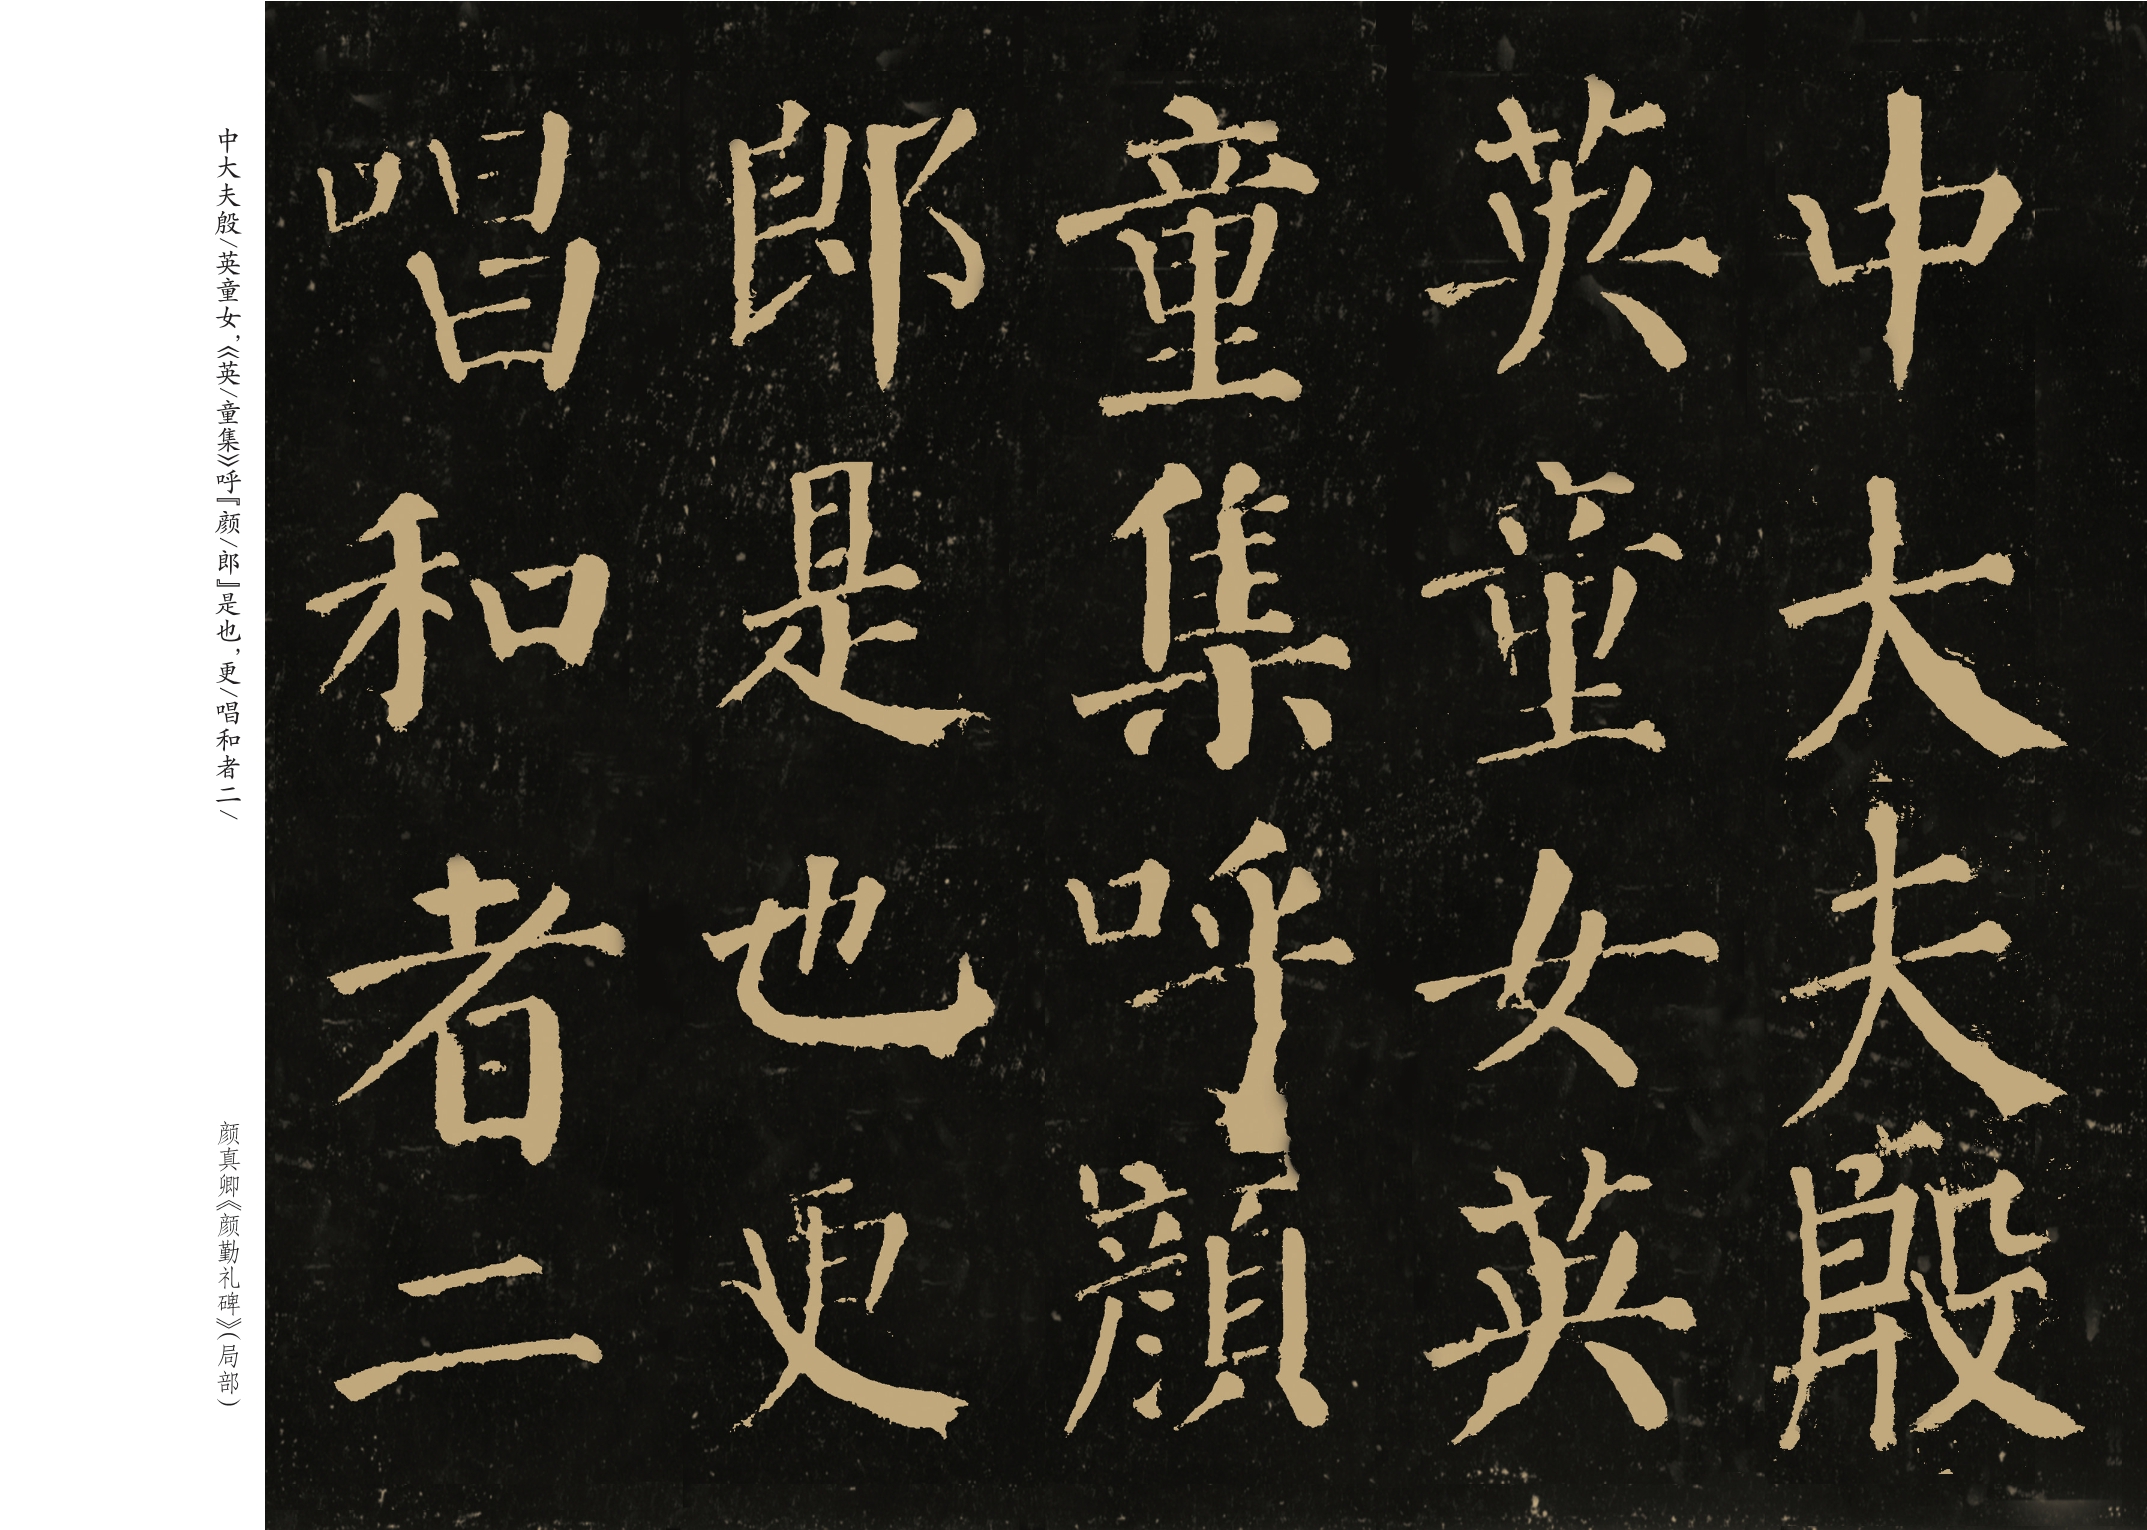 中大夫殷
英童女英
童集呼顔
郎是也更
唱和者二
中大夫殷/英童女,《英/童集》呼『颜/郎』是也,更/唱和者二/
颜真卿《颜勤礼碑》(局部)